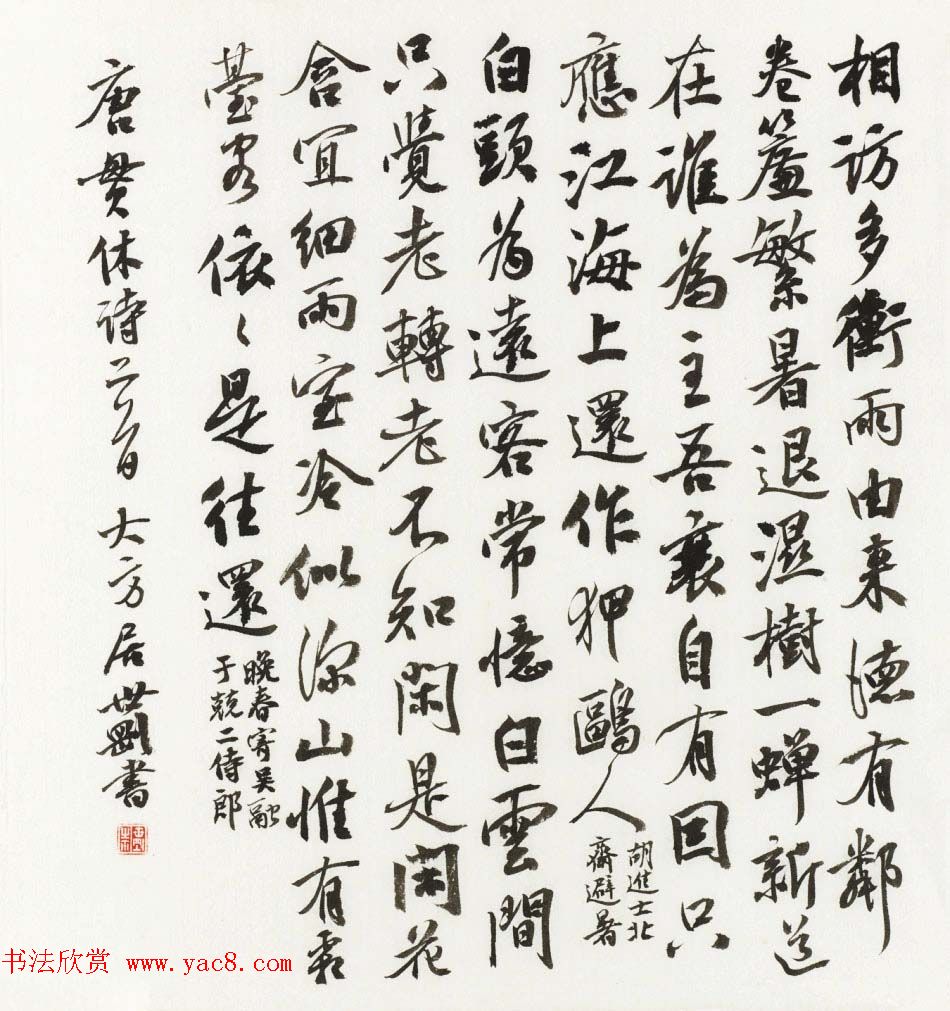 相訪多衝雨由來德有鄰
卷簾繁暑退濕樹一蟬新道
在誰為主吾衰自有因只
應江海上還作狎鷗人
胡進士北
齋避暑
白頭為遠客常憶白雲間
只覺老轉老不知閑是閑花
含宜細雨室冷似深山惟有霜
臺客依〻是往還
晚春寄吳融
于兢二侍郎
唐貫休詩二首 大方居世剛書
书法欣赏 www.yac8.com